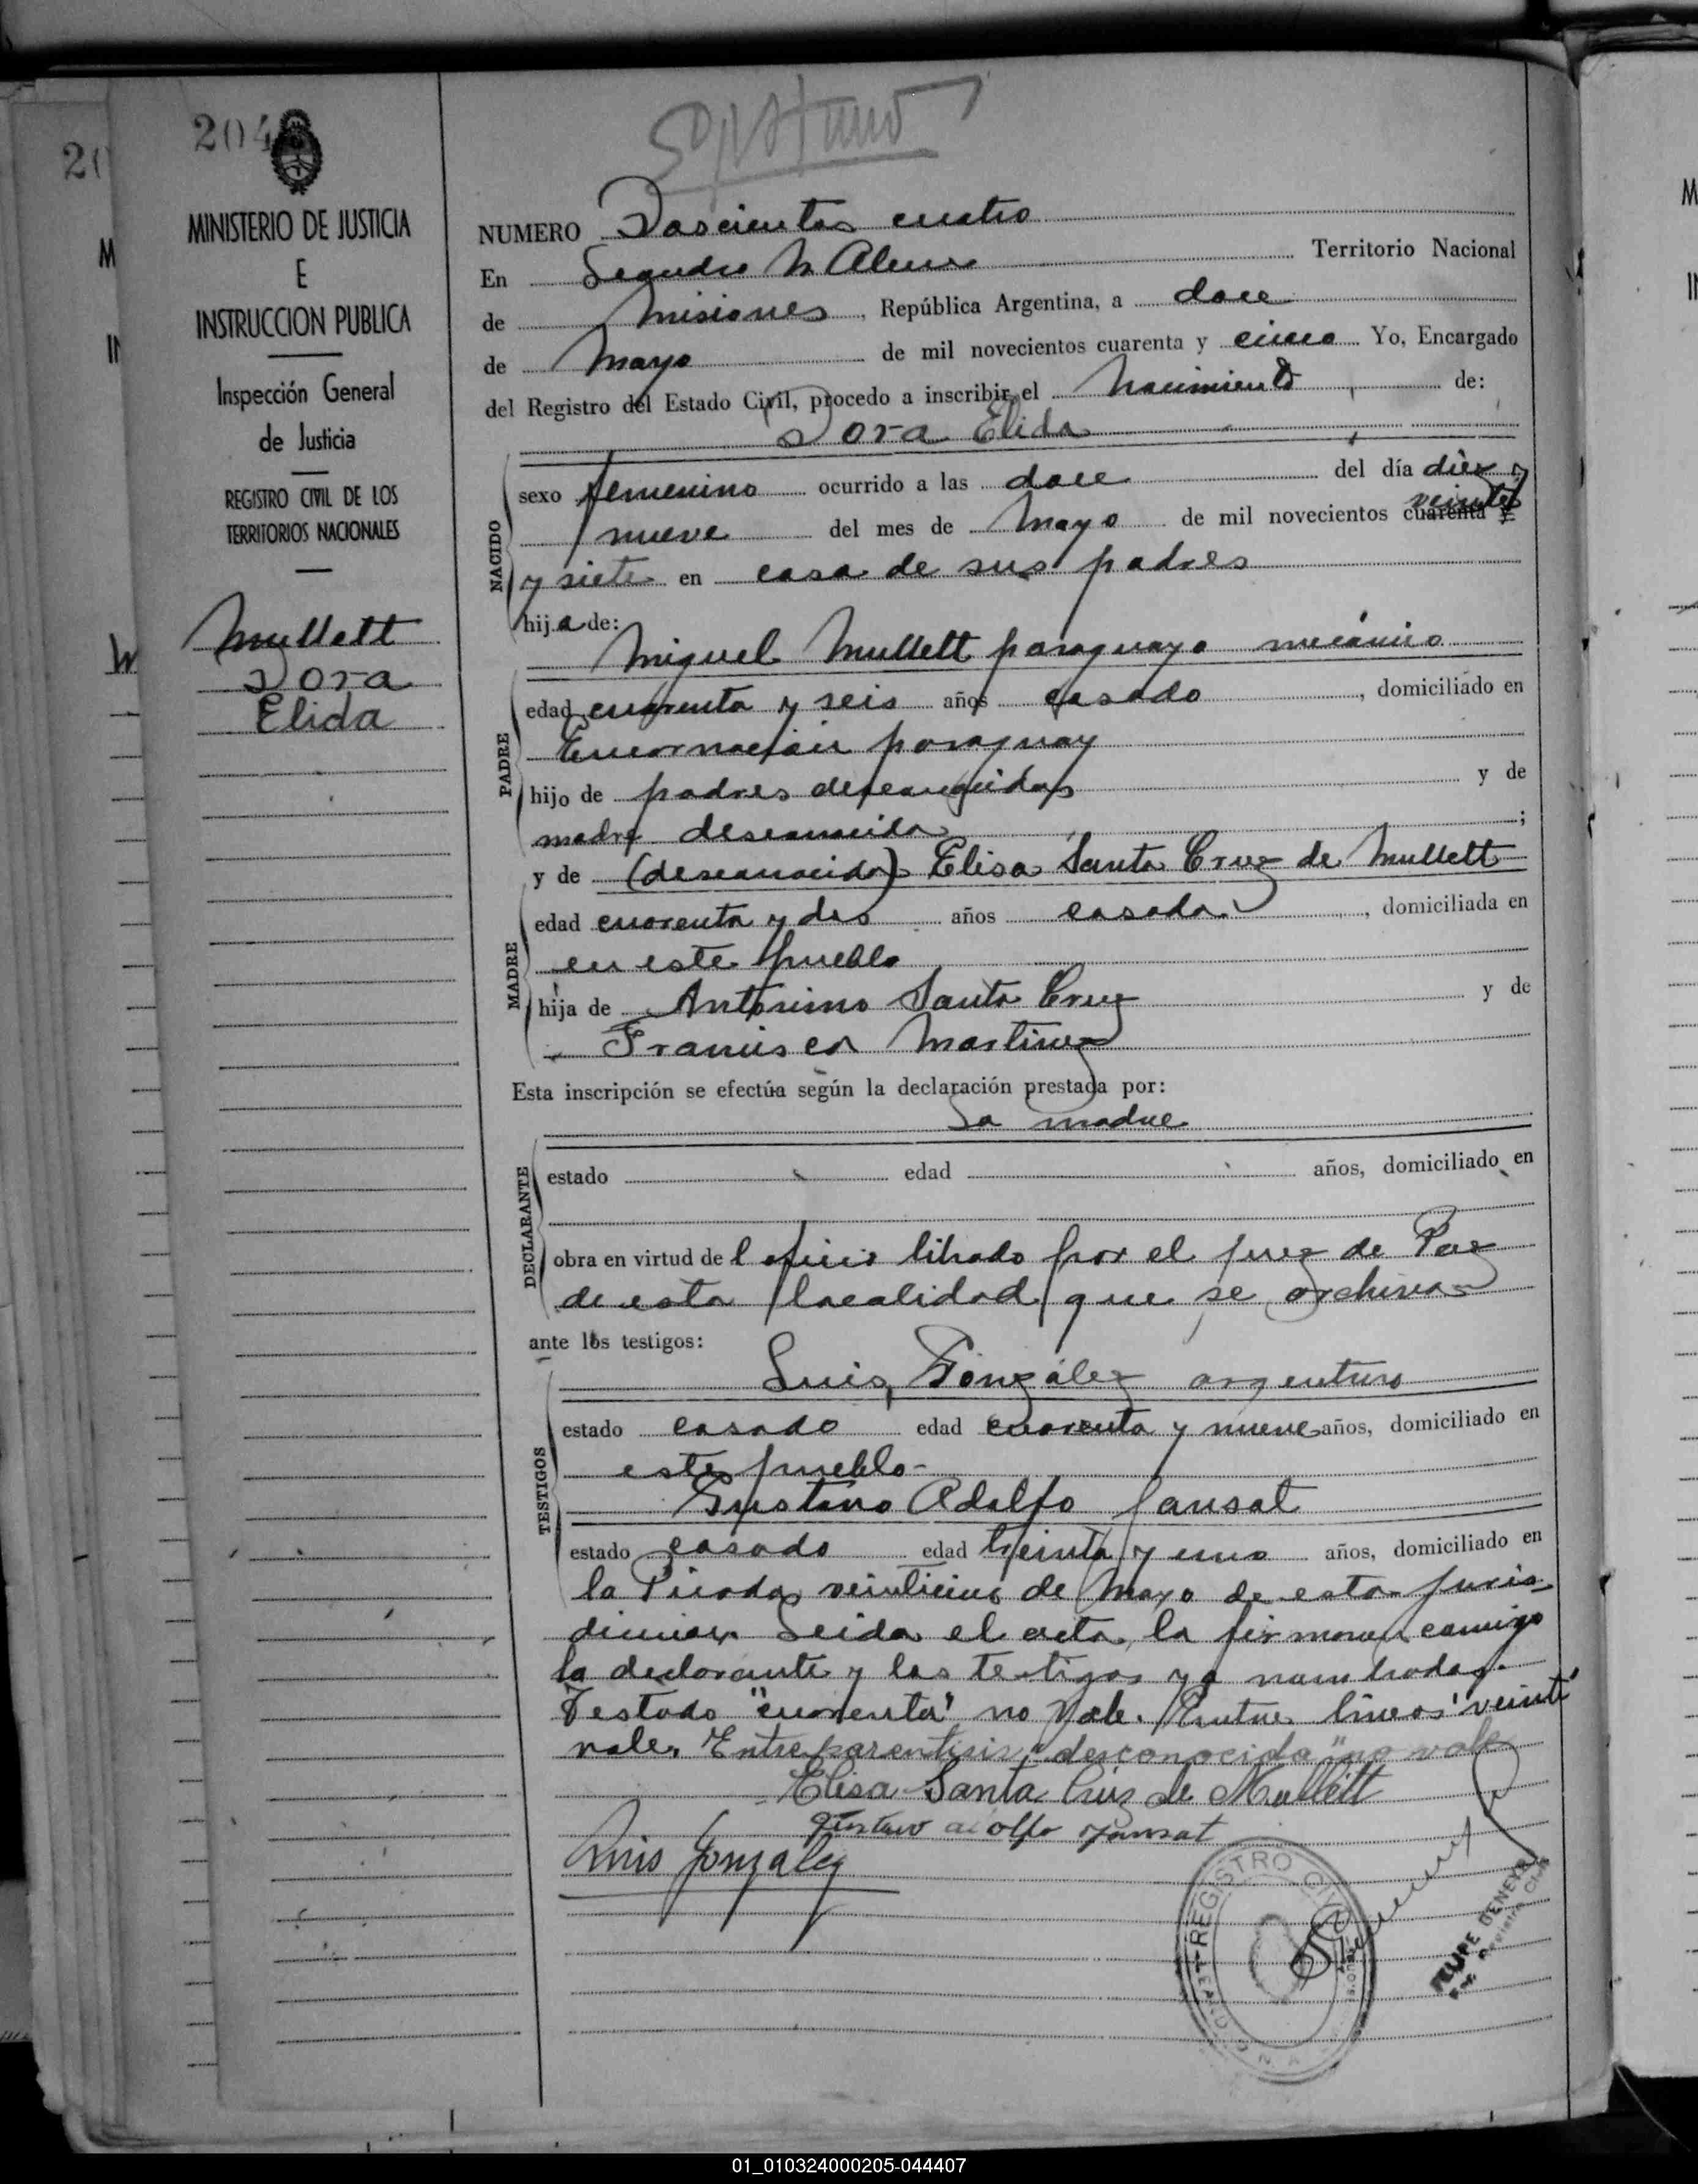 204
MINISTERIO DE JUSTICIA
E
INSTRUCCION PUBLICA
Inspección General
de Justicia
REGISTRO CIVIL DE LOS
TERRITORIOS NACIONALES
Mullett
Dora
Elida
NUMERO Doscientos cuatro
En Leandro N Alem Territorio Nacional
de Misiones, República Argentina, a doce
de Mayo de mil novecientos cuarenta y cinco Yo, Encargado
del Registro del Estado Civil, procedo a inscribir el Nacimiento de:
Dora Elida
NACIDO
sexo femenino ocurrido a las doce del día diez y
veinte
nueve del mes de Mayo de mil novecientos cuarenta y
y siete en casa de sus padres
hija de:
Miguel Mullett paraguayo mecánico
PADRE
edad cuarenta y seis años casado, domiciliado en
Encarnación paraguay
hijo de padres desconocidos y de
madre desconocida;
y de (desconocida) Elisa Santa Cruz de Mullett
MADRE
edad cuarenta y dos años casada, domiciliada en
en este pueblo
hija de Antonino Santa Cruz y de
Francisca Martinez
Esta inscripción se efectúa según la declaración prestada por:
La madre
DECLARANTE
estado edad años, domiciliado en
obra en virtud del oficio librado por el juez de Paz
de esta localidad que se archiva
ante los testigos:
Luis González argentino
TESTIGOS
estado casado edad cuarenta y nueve años, domiciliado en
este pueblo-
Gustavo Adolfo Jansat
estado casado edad treinta y uno años, domiciliado en
la Picada veinticinco de Mayo de esta juris-
diccion Leida el acta, la firmaron conmigo
la declarante y los testigos ya nombrados.
Testado "cuarenta" no vale. Entre lineas "veinte"
vale. Entre parentisis "desconocida" no vale
Elisa Santa Cruz de Mullett
Gustavo adolfo Jansat
Luis Gonzalez
REGISTRO CIVIL
FELIPE BENEYR
01_010324000205-044407